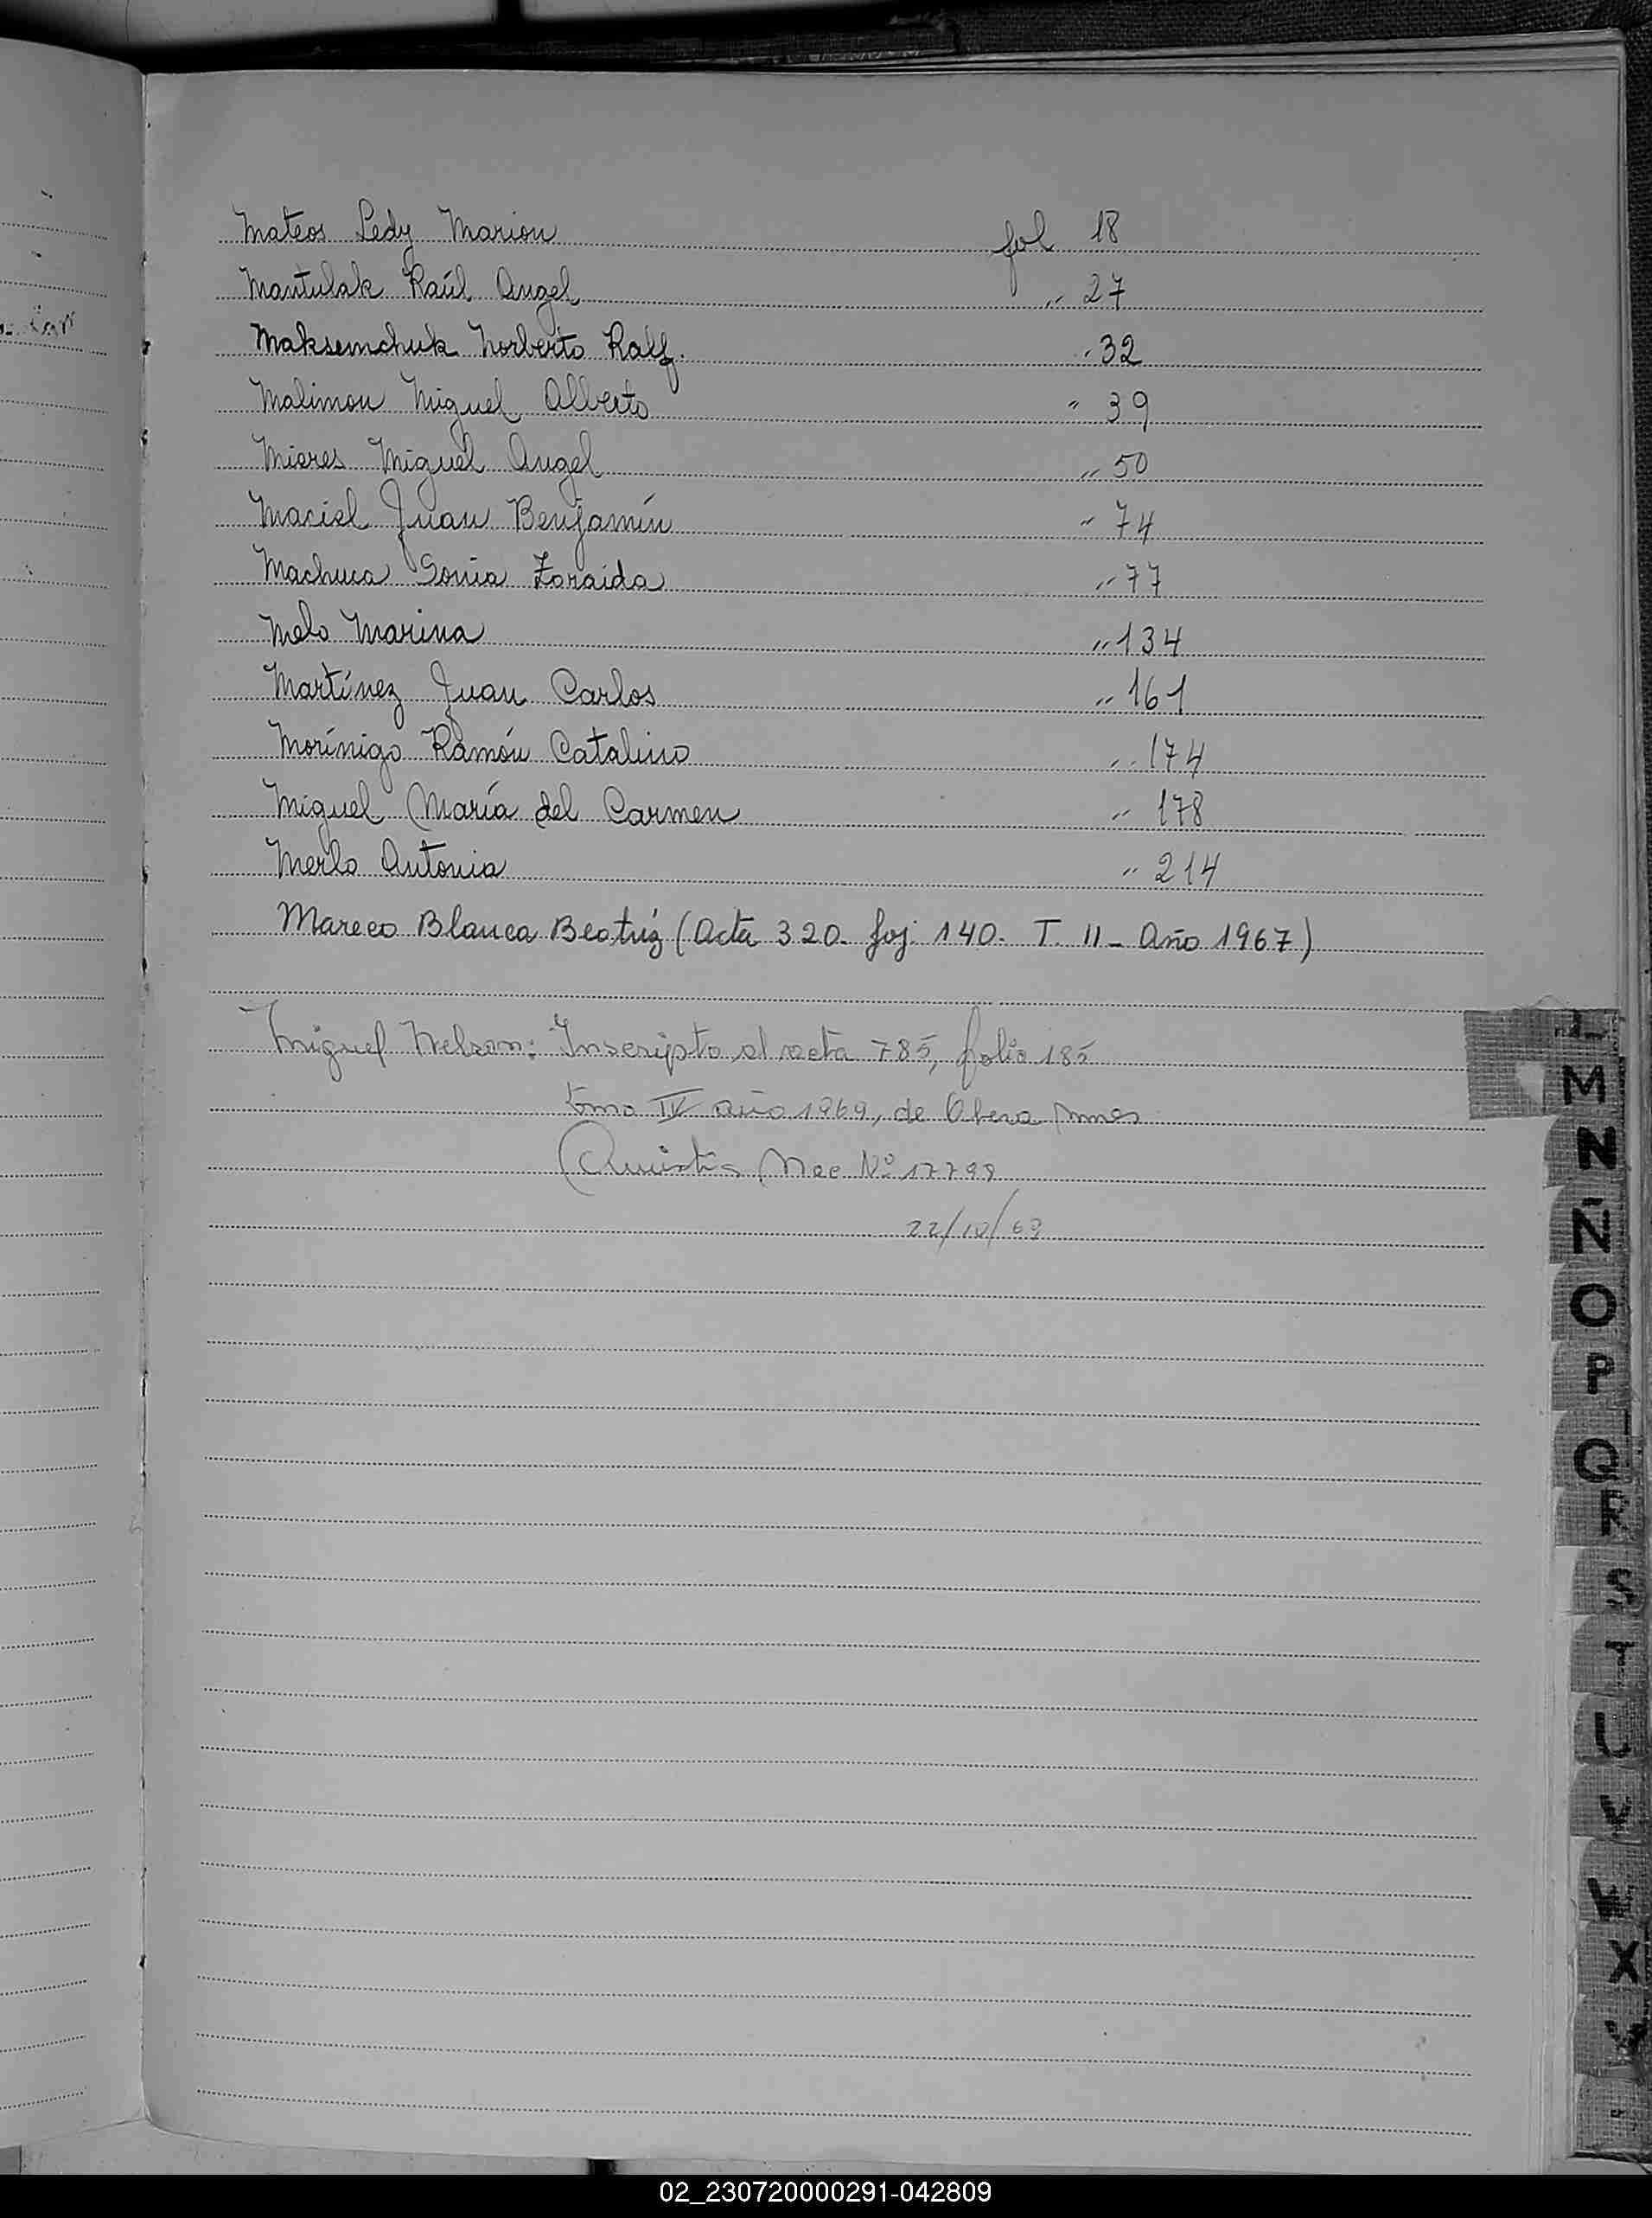 Mateos Ledy Marion fol 18
Mantulak Raúl Angel " 27
Maksemchuk Norberto Ralf. " 32
Malimon Miguel Alberto " 39
Mieres Miguel Angel " 50
Maciel Juan Benjamín " 74
Machuca Sonia Zoraida " 77
Melo Marina " 134
Martínez Juan Carlos " 161
Morínigo Ramón Catalino " 174
Miguel María del Carmen " 178
Merlo Antonia " 214
Mareco Blanca Beatríz (Acta 320. foj. 140. T. II - Año 1967)
Miguel Nelson: Inscripto al acta 785, folio 185
tomo IV año 1969, de Obera Mnes
Nac Nº 17798
22/10/69
L
M
N
Ñ
O
P
Q
R
S
T
U
V
X
02_230720000291-042809